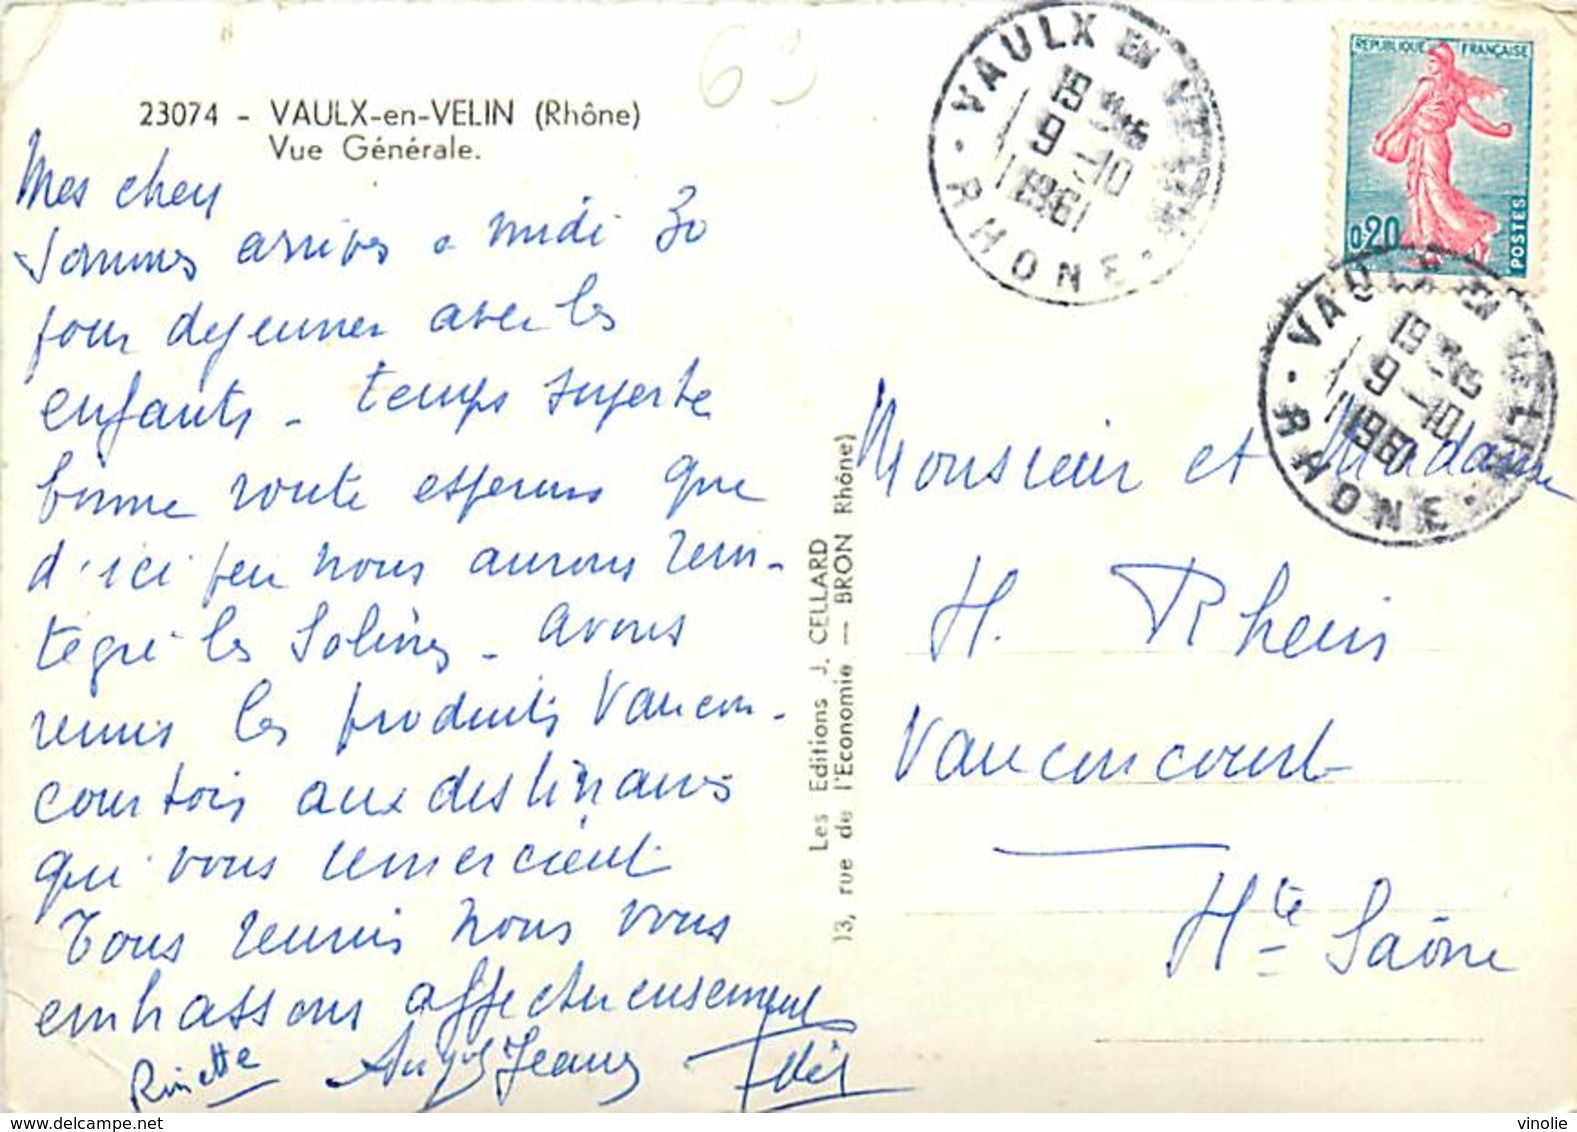 69
23074 - VAULX-en-VELIN (Rhône)
Vue Générale.
Mes chers
Sommes arrivés a midi 30
pour dejeuner avec les
enfants - temps superbe
bonne route esperons que
d'ici peu nous aurons rein-
tegré les Solins - avons
remis les produits Vaucon-
courtois aux destinaires
qui vous remercient
Tous reunis nous vous
embrassons affectueusement
Rinette
Jeanne
Les Editions J. CELLARD
13, rue de l'Economie — BRON Rhône)
VAULX EN VELIN
19
9 -10
1961
RHONE
REPUBLIQUE FRANÇAISE
0,20
POSTES
VAULX EN VELIN
19
9 -10
1961
RHONE
Monsieur et Madame
H. Rhein
Vauconcourt
Hte Saône
delcampe.net
vinolie